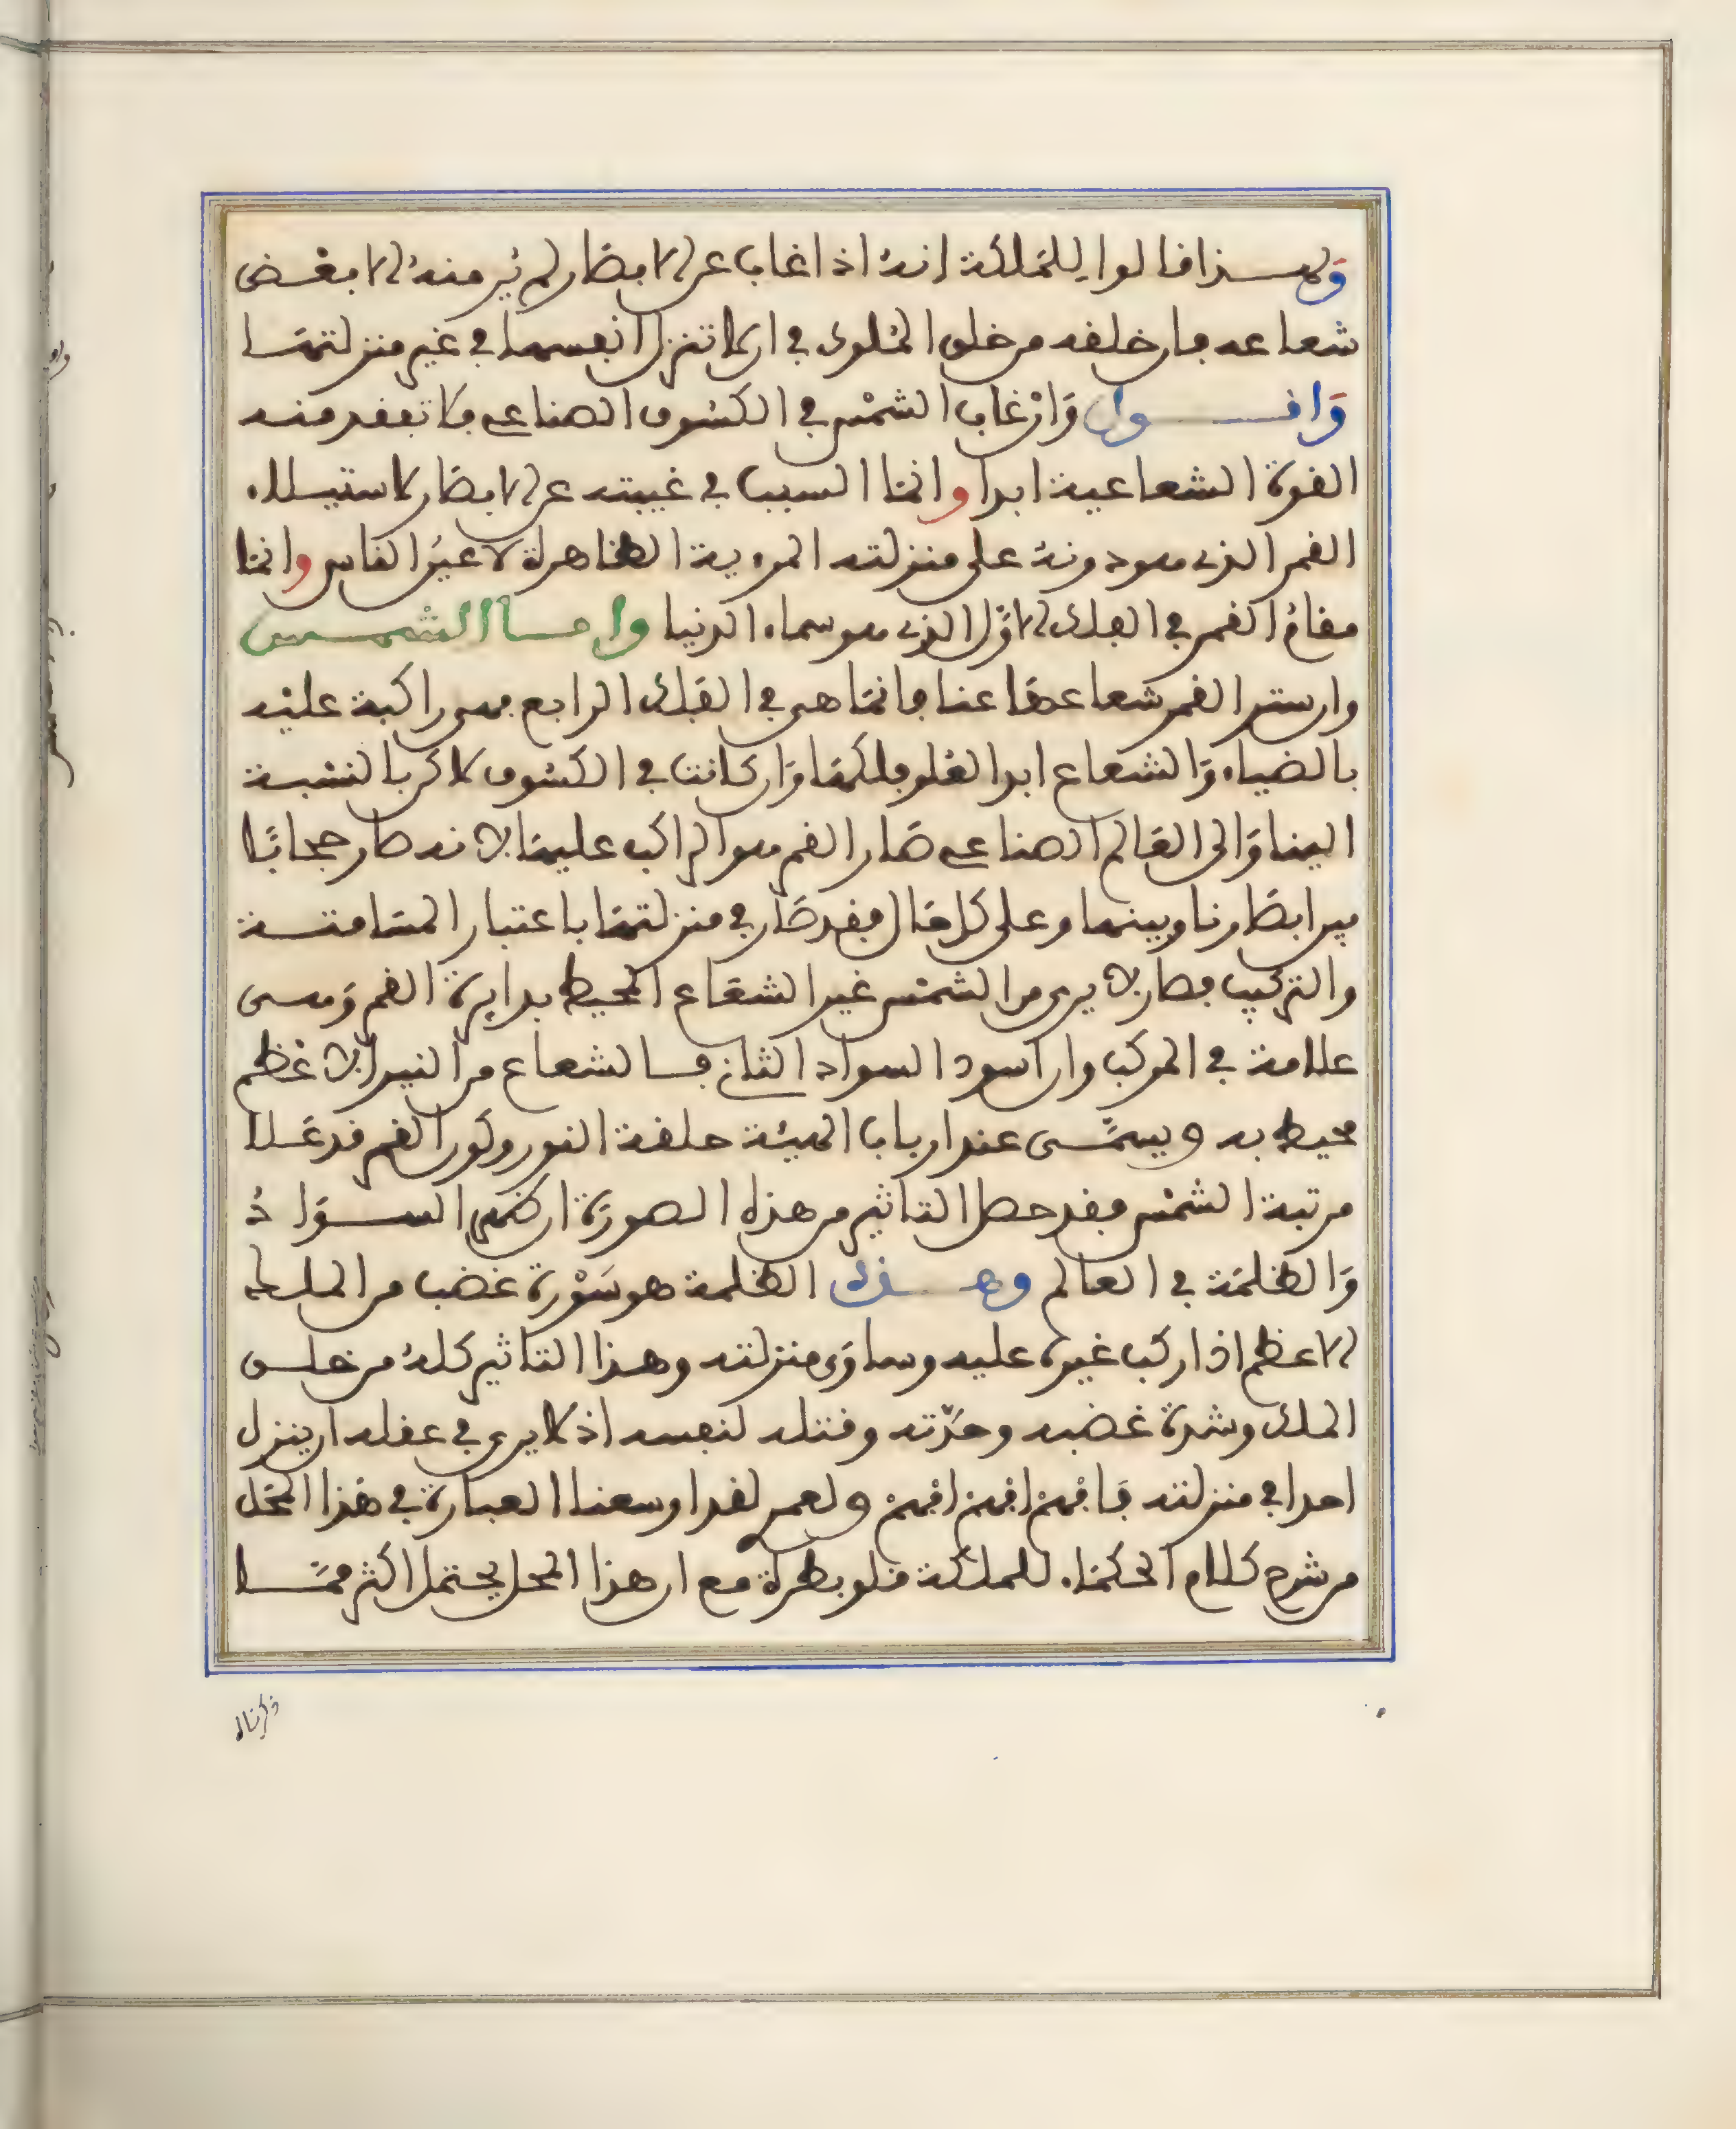 ولهذا قالوا للملكة انه اذا غاب عن الابصار لم ير منه الا بعض
شعاعه فان خلفه من خلق الملوك في ان لا تنزل انفسها في غير منزلتها
واقول وان غاب الشمس في الكسوف الصناعي فلا تفقد منه
القوة الشعاعية ابدا وانما السبب في غيبته عن الابصار لاستيلاء
القمر الذي هو دونه على منزلته المرءية الظاهرة لاعين الناس وانما
مقام القمر في الفلك الاول الذي هو سماء الدنيا واما الشمس
وان ستر القمر شعاعها عنا فانما هي في الفلك الرابع فهي راكبة عليه
بالضياء والشعاع ابدا لعلو فلكها وان كانت في الكسوف لاكن بالنسبة
الينا والى العالم الصناعي صار القمر هو الراكب عليها لانه صار حجابا
بين ابصارنا وبينها وعلى كل حال فقد صار في منزلتها باعتبار المسامتة
والتركيب فصار لا يرى من الشمس غير الشعاع المحيط بدايرة القمر وهى
علامة في المركب وان اسود السواد الثاني فالشعاع من النير الاعظم
محيط به ويسمى عند ارباب الهيئة حلقة النور ولكون القمر قد علا
مرتبة الشمس فقد حصل التاثير من هذه الصورة ان ظهر السواد
والظلمة في العالم وهذه الظلمة هو سورة غضب من الملك
الاعظم اذا ركب غيره عليه وساوى منزلته وهذا التاثير كله من خلق
الملك وشدة غضبه وحدته وقتله لنفسه اذ لا يرى في عقله ان ينزل
احدا في منزلته فافهم افهم افهم ولعمري لقد اوسعنا العبارة في هذا المحل
من شرح كلام الحكماء للملكة قلوبطرة مع ان هذا المحل يحتمل اكثر مما
ذكرناه